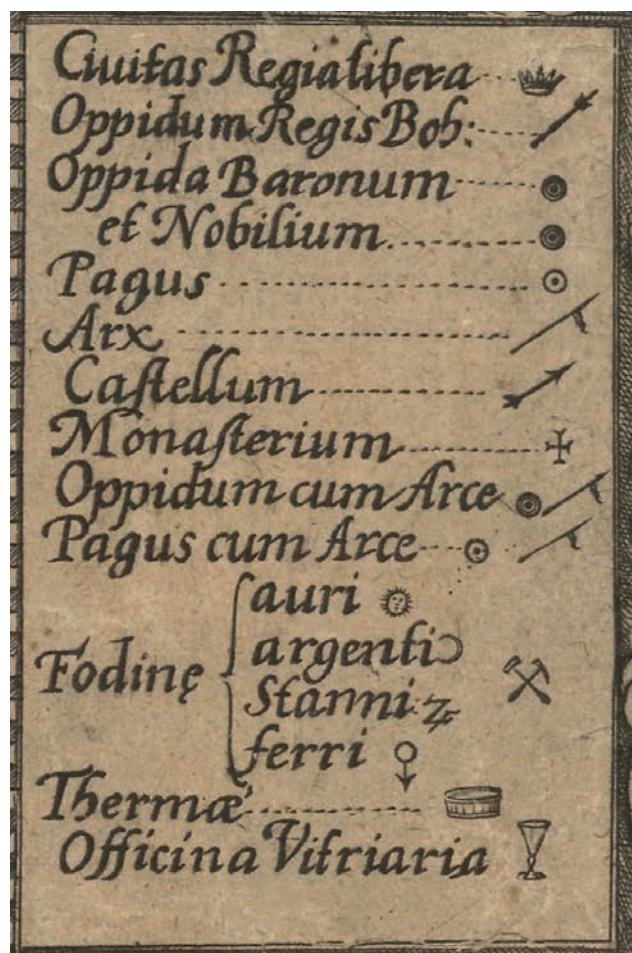 Ciuitas Regia libera
Oppidum Regis Boh:
Oppida Baronum
et Nobilium
Pagus
Arx
Caſtellum
Monaſterium
Oppidum cum Arce
Pagus cum Arce
auri
argenti
Fodinę
Stanni
ferri
Thermæ
Officina Vitriaria